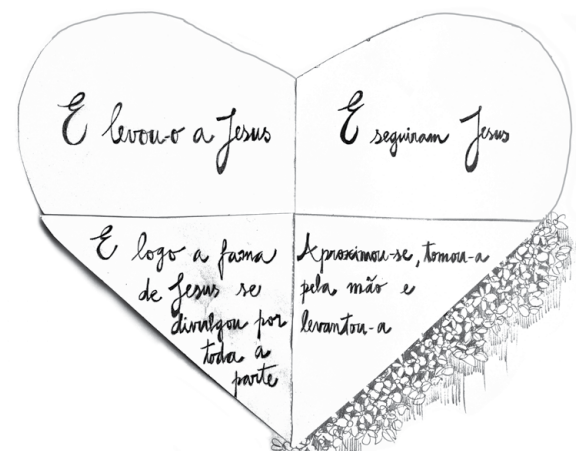 E levou-o a Jesus
E seguiram Jesus
E logo a fama
de Jesus se
divulgou por
toda a
parte
Aproximou-se, tomou-a
pela mão e
levantou-a